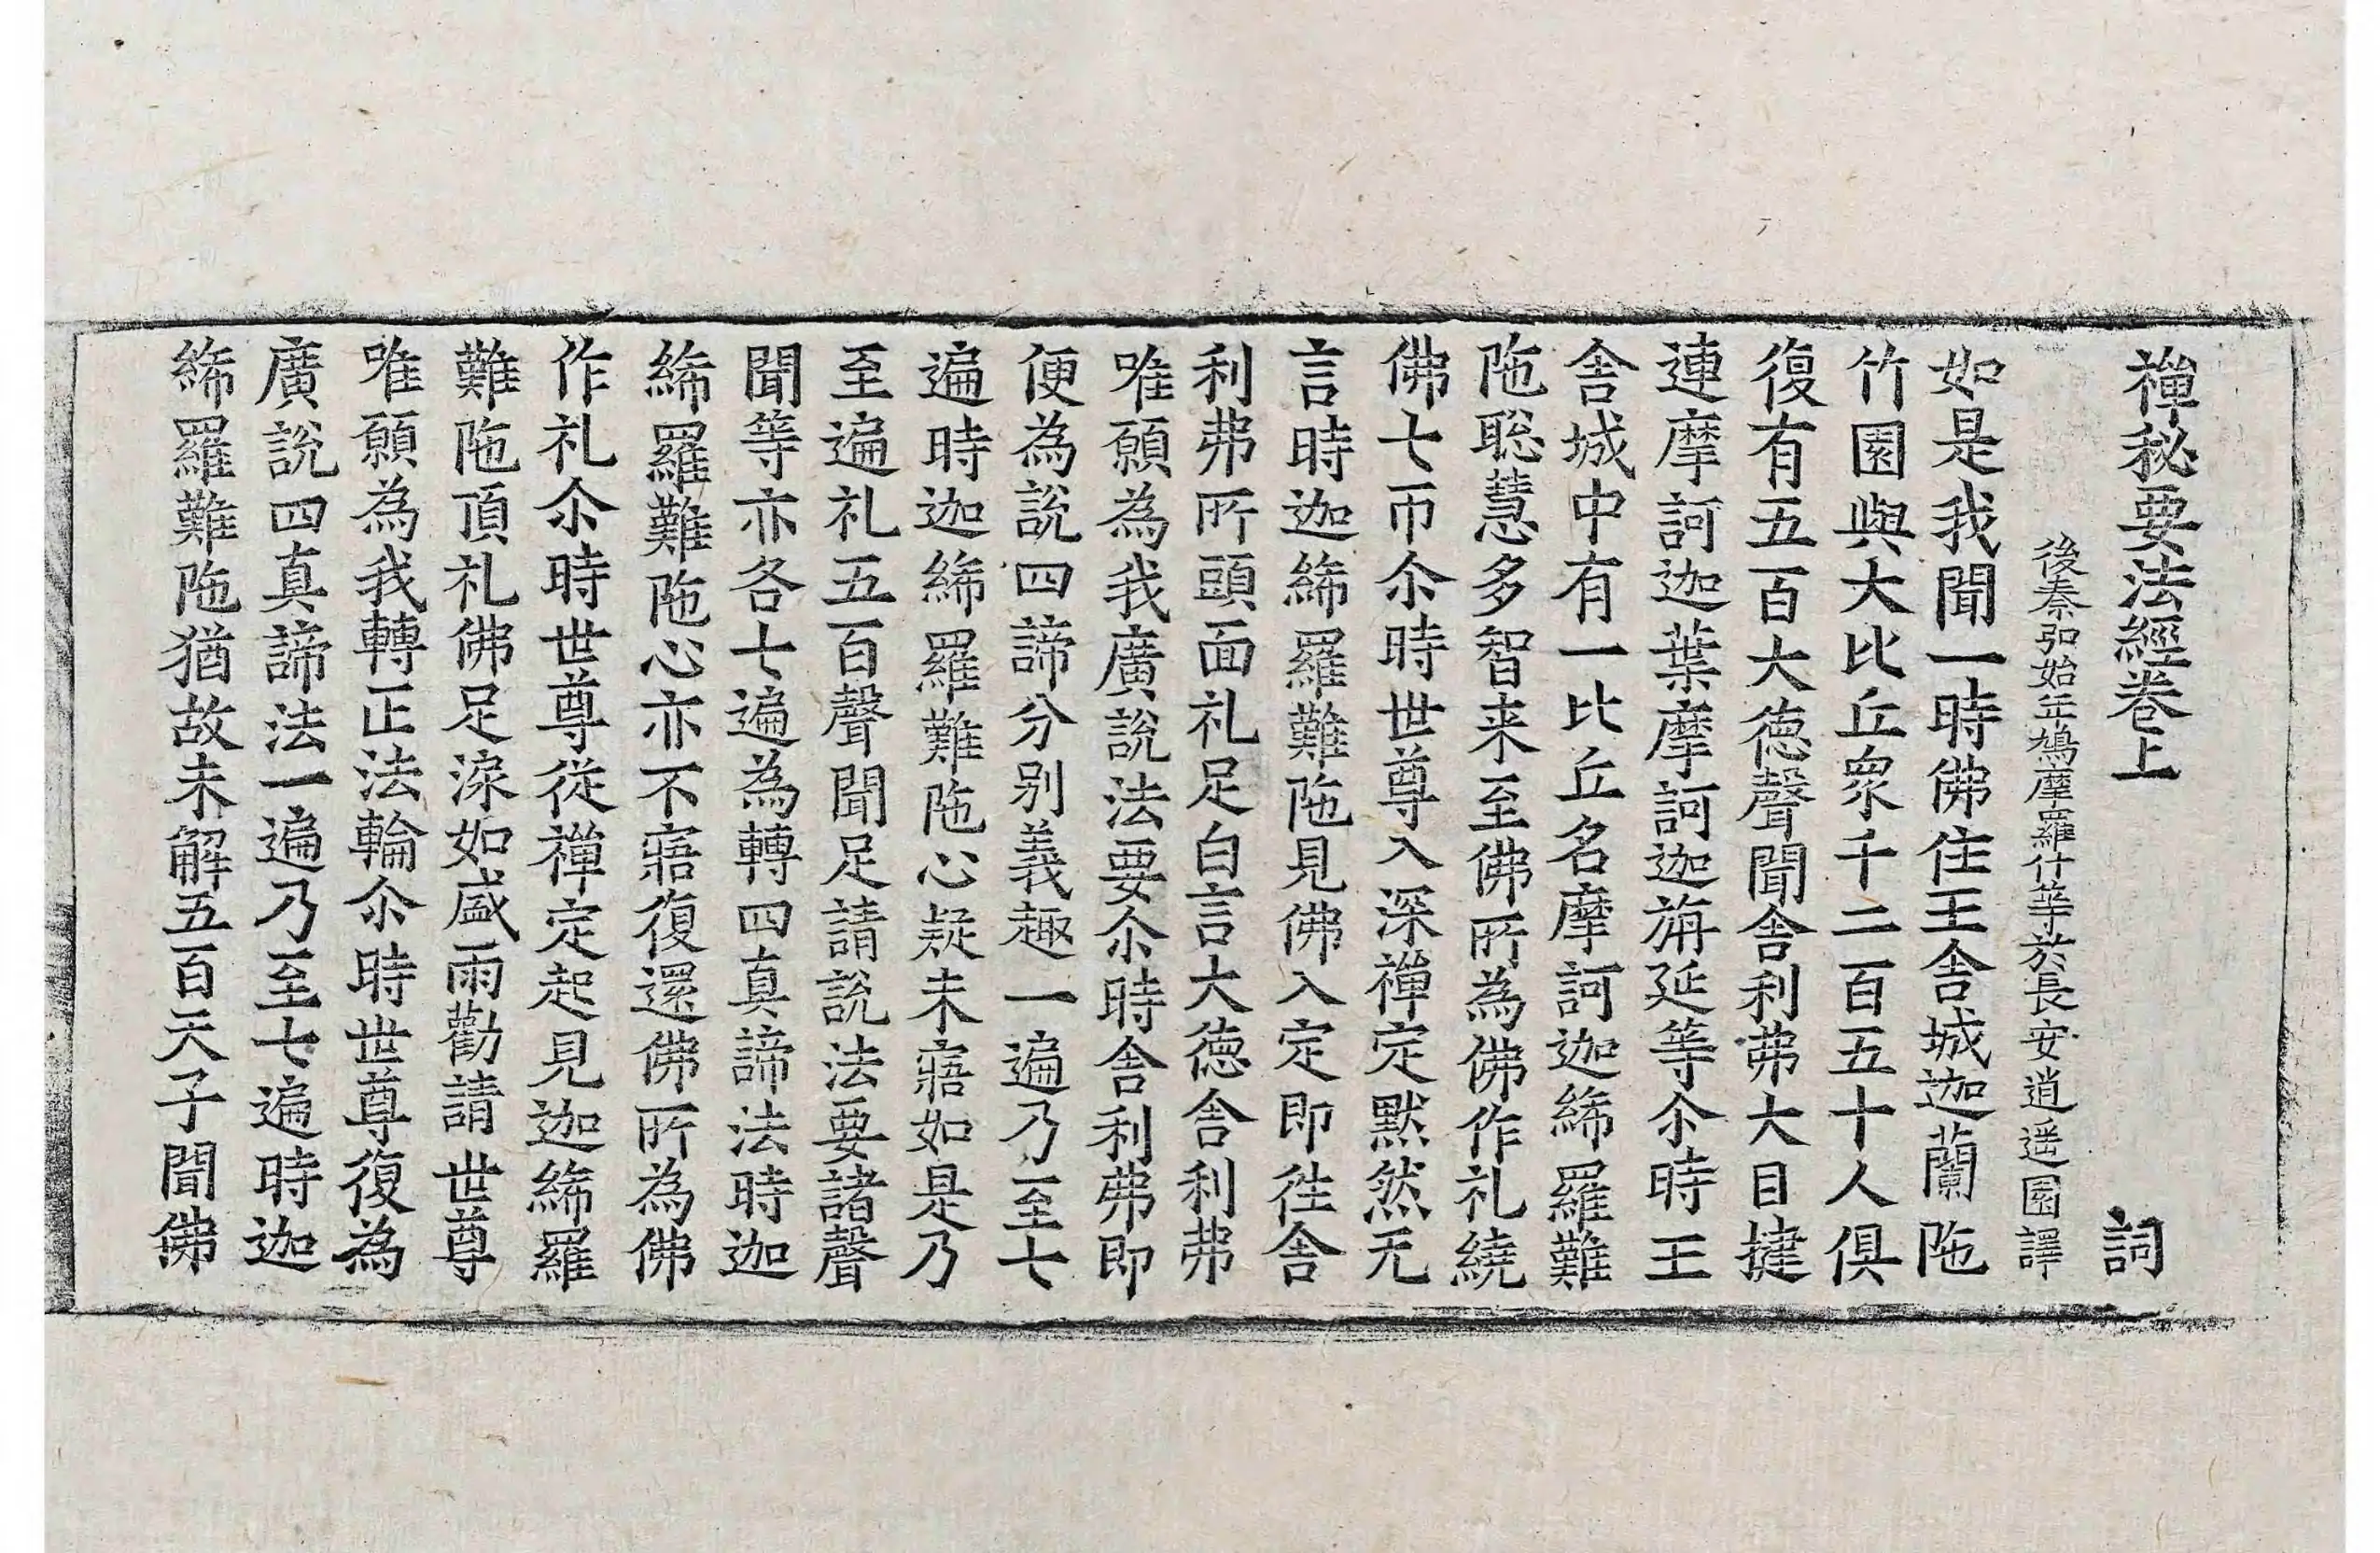 禪秘要法經卷上　詞
後秦弘始年鳩摩羅什等於長安逍遥園譯
如是我聞一時佛住王舍城迦蘭陁
竹園與大比丘衆千二百五十人俱
復有五百大德聲聞舍利弗大目揵
連摩訶迦葉摩訶迦旃延等尒時王
舍城中有一比丘名摩訶迦絺羅難
陁聡慧多智来至佛所為佛作礼繞
佛七帀尒時世尊入深禪定黙然无
言時迦絺羅難陁見佛入定即往舍
利弗所頭面礼足白言大德舍利弗
唯願為我廣說法要尒時舍利弗即
便為說四諦分别義趣一遍乃至七
遍時迦絺羅難陁心疑未寤如是乃
至遍礼五百聲聞足請說法要諸聲
聞等亦各七遍為轉四真諦法時迦
絺羅難陁心亦不寤復還佛所為佛
作礼尒時世尊從禪定起見迦絺羅
難陁頂礼佛足淚如盛雨勸請世尊
唯願為我轉正法輪尒時世尊復為
廣說四真諦法一遍乃至七遍時迦
絺羅難陁猶故未解五百天子聞佛